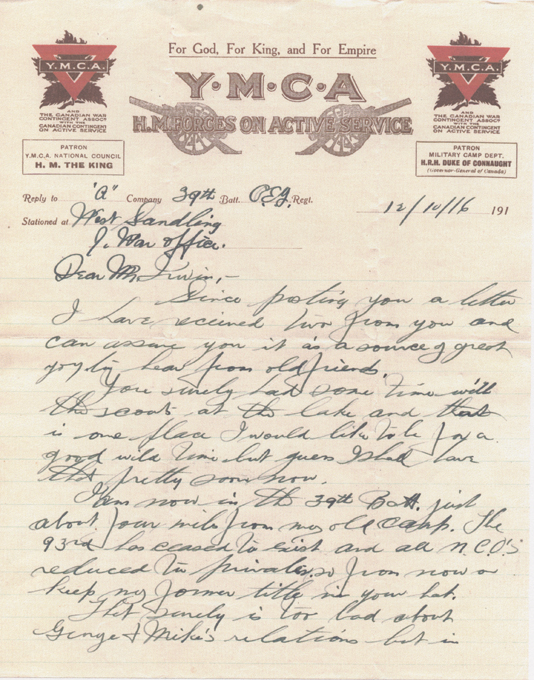 For God, For King, and For Empire
Y·M·C·A
H.M. FORCES ON ACTIVE SERVICE
Y.M.C.A.
AND
THE CANADIAN WAR
CONTINGENT ASSOCN
WITH THE
CANADIAN CONTINGENT
ON ACTIVE SERVICE
PATRON
Y.M.C.A. NATIONAL COUNCIL
H. M. THE KING
Y.M.C.A.
AND
THE CANADIAN WAR
CONTINGENT ASSOCN
WITH THE
CANADIAN CONTINGENT
ON ACTIVE SERVICE
PATRON
MILITARY CAMP DEPT.
H.R.H. DUKE OF CONNAUGHT
(Governor-General of Canada)
Reply to "A" Company 39th Batt. Regt.
12/10/16 191
Stationed at West Sandling
War Office.
Dear Mr. Irwin,-
Since posting you a letter
I have received two from you and
can assure you it is a source of great
joy to hear from old friends.
You surely had some time with
the scouts at the lake and that
is one place I would like to be for a
good wild time but guess I shall have
that pretty soon now.
I am now in the 39th Batt. just
about four miles from my old camp. The
93rd has ceased to exist and all N.C.O's
reduced to privates, so from now on
keep my former title in your hat.
That surely is too bad about
George & Mike's relations but in